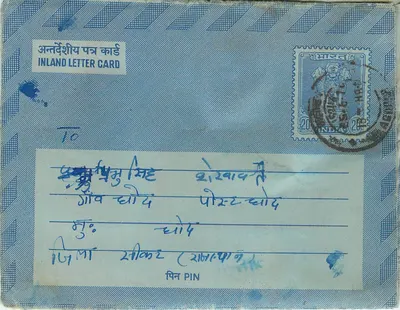 अन्तर्देशीय पत्र कार्ड
INLAND LETTER CARD
भारत
20 20
INDIA
TO
सिंह शेखावत
गाँव घोद पोस्ट घोद
मु० घोद
जिला सीकर (राजस्थान)
पिन PIN